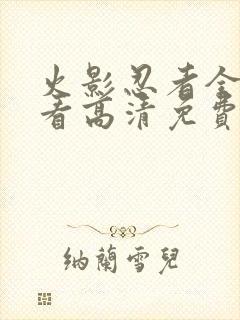 火影忍者全
看高清免費
纳蘭雪兒